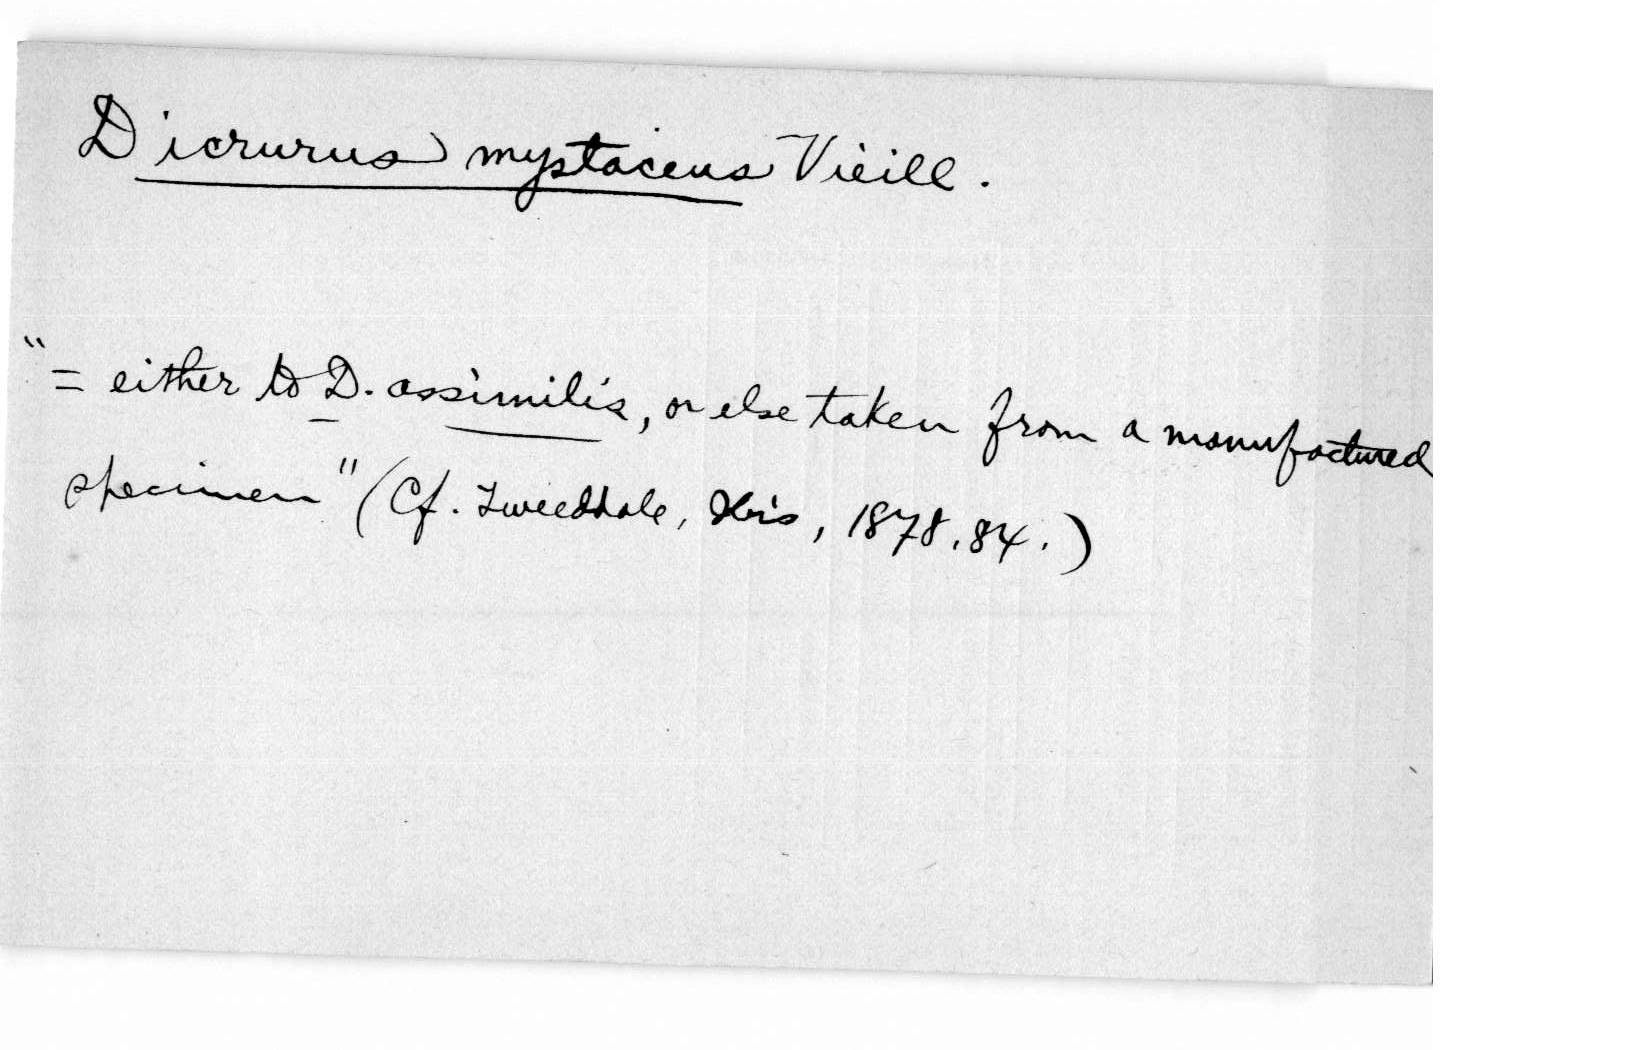 Dicrurus mystaceus Vieill.
"= either to D. assimilis, or else taken from a manufactured
specimen" (Cf. Tweeddale, Ibis, 1878, 84.)